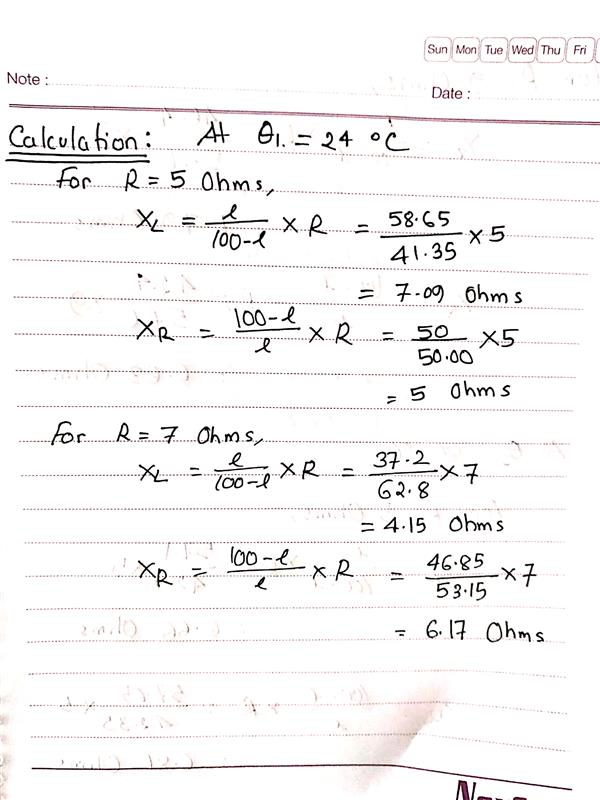 Sun Mon Tue Wed Thu Fri
Note :
Date :
Calculation: At θ1. = 24 °C
For R = 5 Ohms,
XL = l/100-l × R = 58.65/41.35 × 5
= 7.09 Ohms
XR = 100-l/l × R = 50/50.00 × 5
= 5 Ohms
For R = 7 Ohms,
XL = l/100-l × R = 37.2/62.8 × 7
= 4.15 Ohms
XR = 100-l/l × R = 46.85/53.15 × 7
= 6.17 Ohms